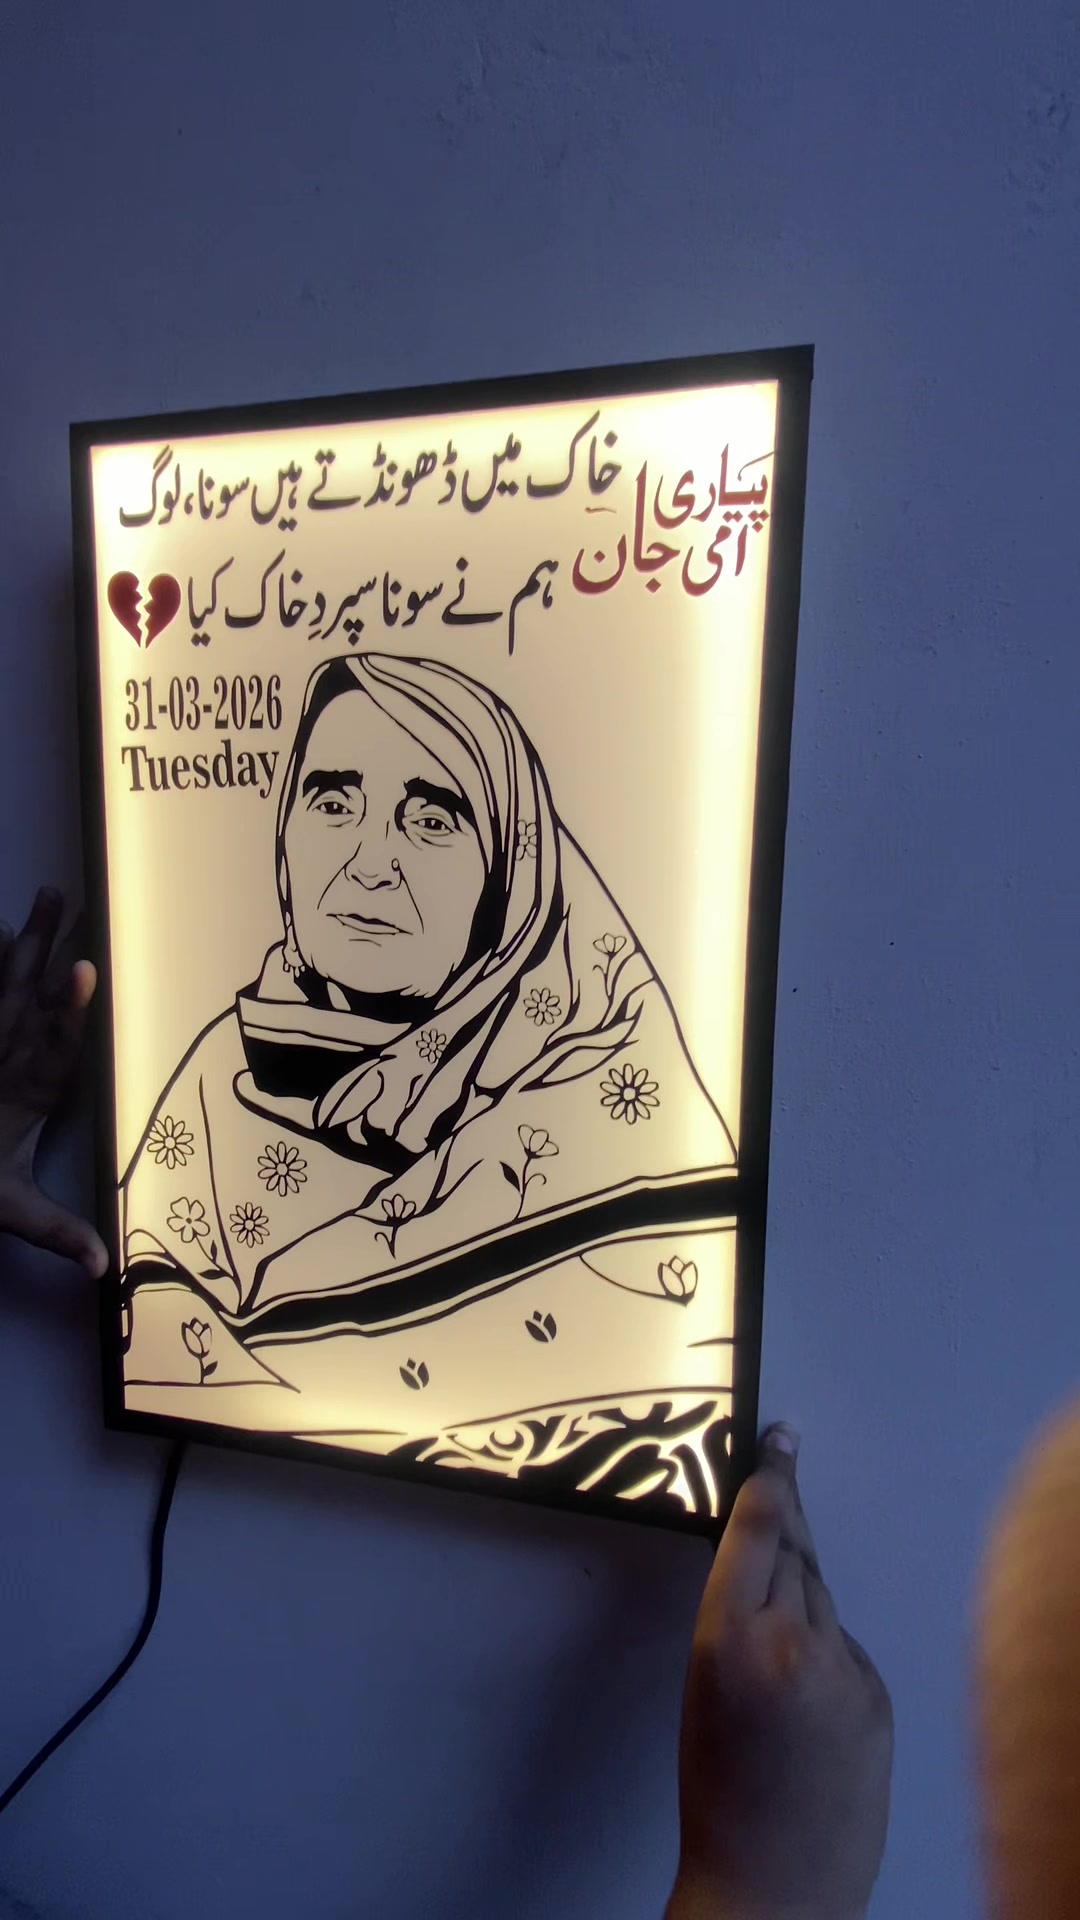 پیاری
امی جان
خاک میں ڈھونڈتے ہیں سونا، لوگ
ہم نے سونا سپردِ خاک کیا
31-03-2026
Tuesday